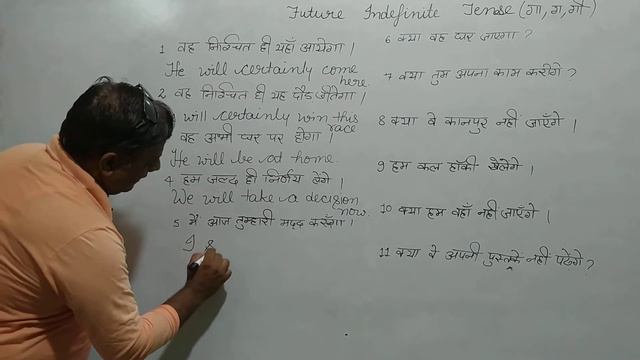 Future Indefinite Tense (गा, ग, गी)
1 वह निश्चित ही यहाँ आयेगा।
He will certainly come
here.
2 वह निश्चित ही यह दौड़ जीतेगा।
will certainly win this
race
वह अभी घर पर होगा।
He will be at home.
4 हम जल्द ही निर्णय लेंगे।
We will take a decision
now.
5 में आज तुम्हारी मदद करूँगा।
I s
6 क्या वह घर जाएगा?
7 क्या तुम अपना काम करोगे?
8 क्या वे कानपुर नहीं जाएँगे।
9 हम कल हॉकी खेलेंगे।
10 क्या हम वहाँ नहीं जाएँगे।
11 क्या वे अपनी पुस्तकें नहीं पढ़ेंगे?